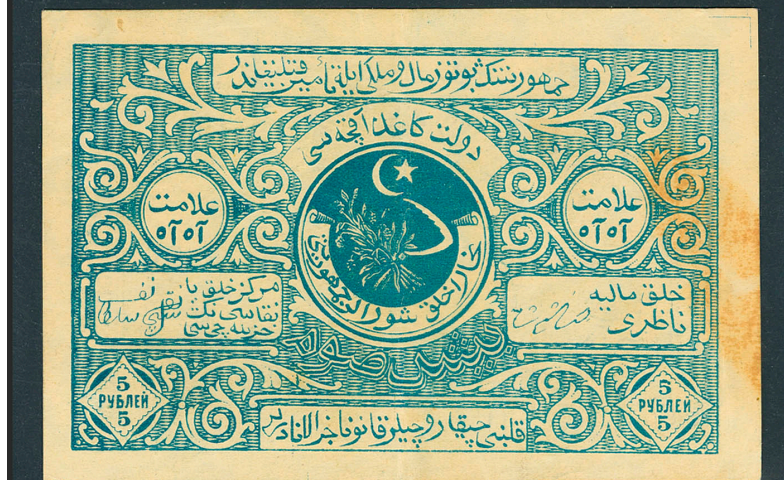 جمهورینینگ بوتون مال و ملکی ایله تأمین قیلینغاندر
دولت کاغد آقچه سی
علامت
آه آه
علامت
آه آه
بخارا خلق شورالر جمهوریتی
مرکز خلق با
نقاسی نک
خزینه چی سی
خلق مالیه
ناظری
بیش صوم
5
РУБЛЕЙ
5
5
РУБЛЕЙ
5
قلبنی چیقاروچیلر قانونا جزالانادیلر